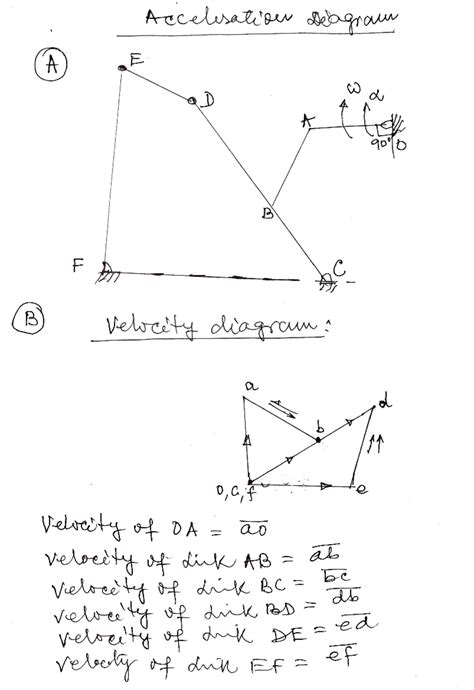 Acceleration Diagram
A
E
D
ω α
A
90° O
B
F
C
B
Velocity diagram:
a
d
b
O, C, f
e
Velocity of OA = ao
Velocity of link AB = ab
Velocity of link BC = bc
Velocity of link BD = db
Velocity of link DE = ed
Velocity of link EF = ef